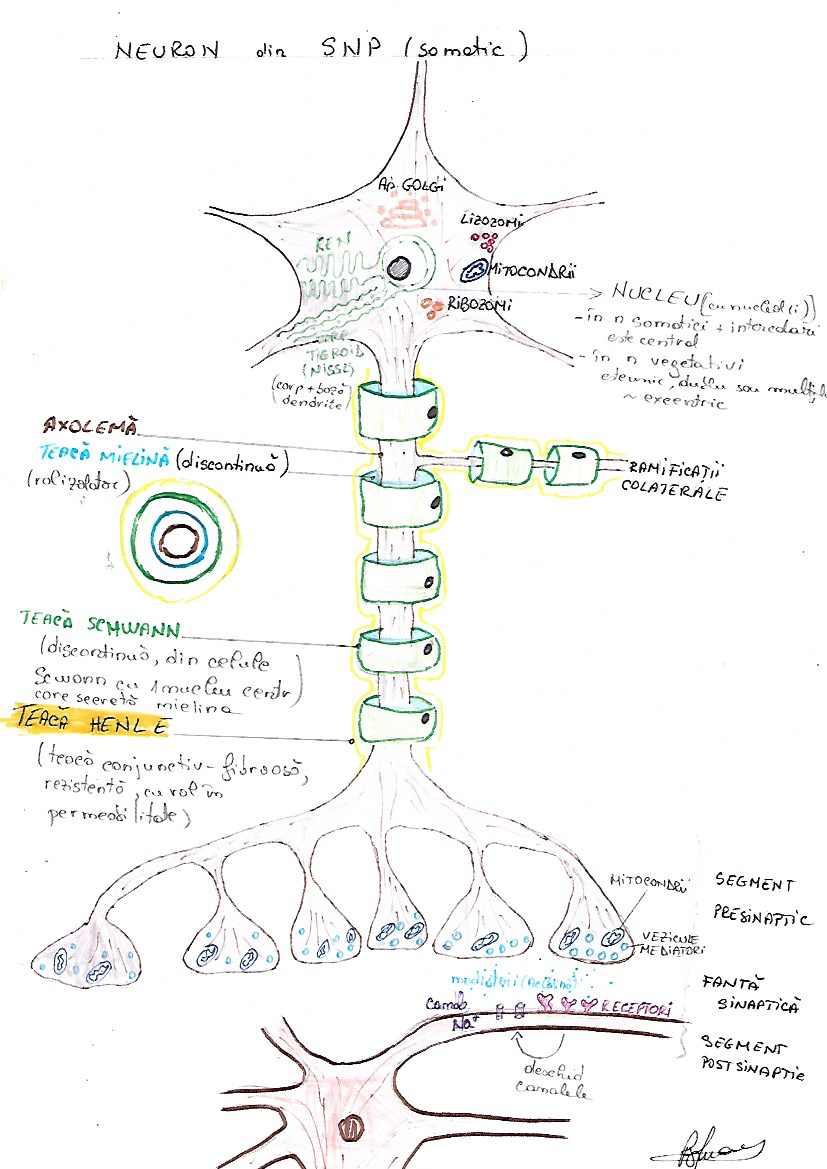 NEURON din SNP (somatic)
Ap. GOLGI
LIZOZOMI
REN
MITOCONDRII
NUCLEU (cu nucleol(i))
RIBOZOMI
- în n somatici + intercalari
este central
CORP
TIGROID
(NISSL)
- în n vegetativi
(corp + bază
dendrite)
~ excentric
AXOLEMĂ
TEACĂ MIELINĂ (discontinuă)
(rol izolator)
RAMIFICAȚII
COLATERALE
TEACĂ SCHWANN
(discontinuă, din celule
Scwann cu 1 nucleu centr)
care secretă mielina
TEACĂ HENLE
(teacă conjunctiv-fibroasă,
rezistentă, cu rol în
permeabilitate)
MITOCONDRII
SEGMENT
PRESINAPTIC
VEZICULE
MEDIATORI
mediatori
FANTĂ
SINAPTICĂ
Na⁺
RECEPTORI
SEGMENT
POSTSINAPTIC
deschid
canalele